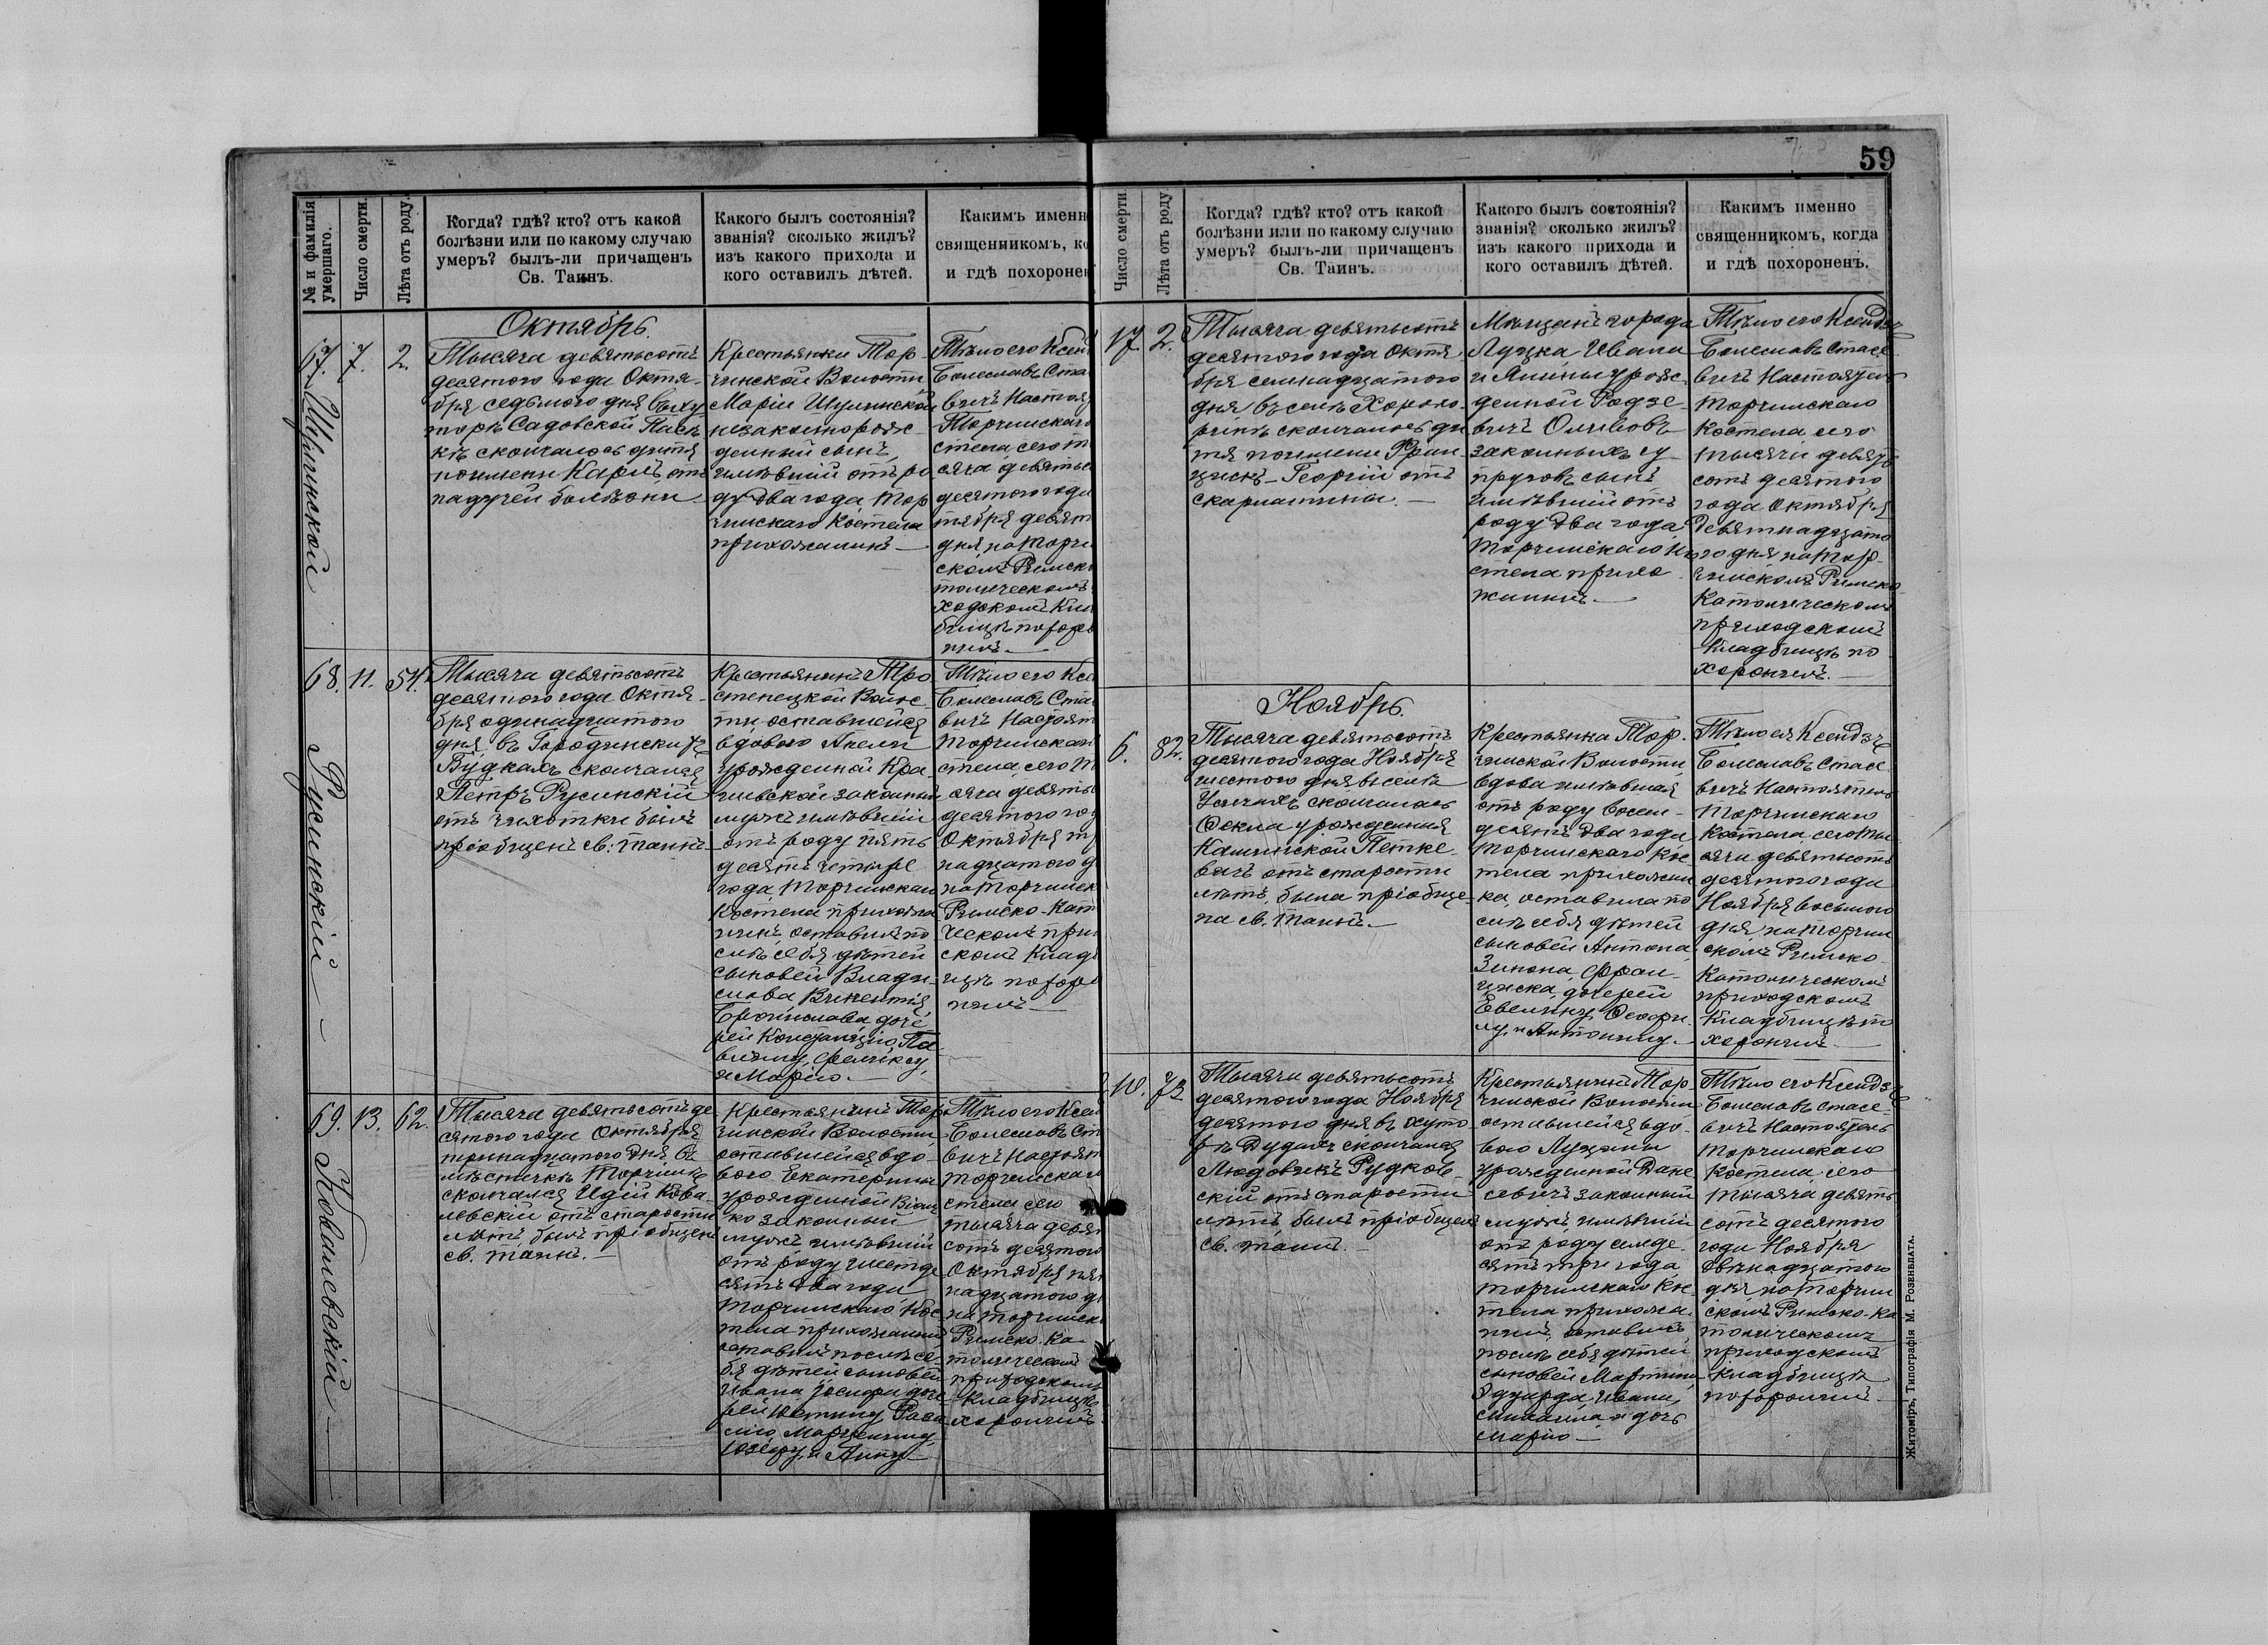 59
№ и фамилія умершаго.
Число смерти.
Лѣта отъ роду.
Когда? гдѣ? кто? отъ какой
болѣзни или по какому случаю
умеръ? былъ-ли причащенъ
Св. Таинъ.
Какого былъ состоянія?
званія? сколько жилъ?
изъ какого прихода и
кого оставилъ дѣтей.
Какимъ именн
священникомъ, ко
и гдѣ похоронен
Октябрь.
67. Шулинской
7.
2.
Тысяча девятьсотъ
десятого года Октя-
бря седьмого дня въ ху
торѣ Садовской Пасѣ
кѣ скончалось дитя
по имени Карлъ, отъ
падучей болѣзни
Крестьянки Тор
чинской Волости
Маріи Шулинской
незаконнорож-
денный сынъ,
имѣвшій отъ ро
ду два года, Тор
чинскаго Костела
прихожанинъ —
Тѣло его Ксен
Болеславъ Ста
вичъ Настоя
Торчинскаго
стела, сего т
сяча девятьс
десятого года
тября девят
дня, на Торчи
скомъ Римско
толическомъ
ходскомъ Кла
бищѣ похоро
нилъ —
68. Русинскій —
11.
54.
Тысяча девятьсотъ
десятого года Октя-
бря одинадцатого
дня въ Городинскихъ
Будкахъ скончался
Петръ Русинскій
отъ чахотки былъ
пріобщенъ св: таинъ
Крестьянинъ Тро
стенецкой Волос-
ти, оставшейся
вдовою Анели
урожденной Кра-
евской законный
мужъ имѣвшій
отъ роду пять
десятъ четыре
года, Торчинскаго
Костела прихожа
нинъ, оставилъ по
слѣ себя дѣтей
сыновей Влади-
слава Викентія,
Брониславa доче
рей Констанцію, Па
влину, Феликсу,
и Марію. —
Тѣло его Ксе
Болеславъ Ста
вичъ Настоят
Торчинскаго
стела, сего т
сяча девять
десятого го
Октября т
надцатого д
на Торчинск
Римско-Кат
ческомъ при
скомъ Клад
ищѣ похоро
нилъ —
69. Ковалевскій —
13.
62.
Тысяча девятьсотъ де
сятого года Октября
тринадцатого дня въ
мѣстечкѣ Торчинѣ
скончался Идій Кова
левскій отъ старости
лѣтъ, былъ пріобщенъ
св. таинъ. —
Крестьянинъ Тор
чинской Волости,
оставшейся вдо-
вою Екатерины
урожденной
законный
мужъ имѣвшій
отъ роду шестьде
сятъ два года
Торчинскаго Кос
тела прихожанинъ,
оставилъ послѣ се
бя дѣтей сыновей
Ивана Іосифа доче
рей Юстину
Марцелину,
и Анну —
Тѣло его Ксен
Болеславъ Ст
вичъ Настоят
Торчинскаго
стела сего
тысяча девя
сотъ десятого
Октября пят
надцатого д
на Торчинск
Римско-Ка
толическомъ
приходскомъ
Кладбищѣ
хоронилъ
Число смерти
Лѣта отъ роду
Когда? гдѣ? кто? отъ какой
болѣзни или по какому случаю
умеръ? былъ-ли причащенъ
Св. Таинъ.
Какого былъ состоянія?
званія? сколько жилъ?
изъ какого прихода и
кого оставилъ дѣтей.
Какимъ именно
священникомъ, когда
и гдѣ похороненъ.
17.
2.
Тысяча девятьсотъ
десятого года Октя
бря семнадцатого
дня въ селѣ Хорохо-
ринѣ скончалось ди
тя по имени Фран-
цискъ-Георгій отъ
скарлатины. —
Мѣщанъ города
Луцка Ивана
и Янины урож-
денной Родзе-
вичъ
законныхъ су
пруговъ сынъ
имѣвшій отъ
роду два года,
Торчинскаго Ко
стела прихо
жанинъ. —
Тѣло его Ксендзъ
Болеславъ Стасе
вичъ Настоятель
Торчинскаго
Костела, сего
тысяча девять
сотъ десятого
года Октября
девятнадцато
го дня, на Тор-
чинскомъ Римско
Католическомъ
приходскомъ
Кладбищѣ по
хоронилъ. —
Ноябрь.
6.
82.
Тысяча девятьсотъ
десятого года Ноября
шестого дня въ селѣ
скончалась
Ѳекла урожденная
Петке-
вичъ отъ старости
лѣтъ, была пріобще-
на св. таинъ. —
Крестьянка Тор-
чинской Волости,
вдова имѣвшая
отъ роду восем-
десятъ два года,
Торчинскаго Кос
тела прихожан
ка, оставила по
слѣ себя дѣтей
сыновей Антона,
Зинона, Фран-
циска, дочерей
Евелину, Ѳеофи-
лу, и Антонину. —
Тѣло ея Ксендзъ
Болеславъ Стасе-
вичъ Настоятель
Торчинскаго
Костела, сего ты
сяча девятьсотъ
десятого года
Ноября восьмого
дня, на Торчин
скомъ Римско-
Католическомъ
приходскомъ
Кладбищѣ по
хоронилъ —
10.
73
Тысяча девятьсотъ
десятого года Ноября
десятого дня въ хуто
рѣ Дудахъ скончался
Людовикъ Рудков-
скій отъ старости
лѣтъ, былъ пріобщенъ
св. таинъ. —
Крестьянинъ Тор
чинской Волости
оставшейся вдо-
вою Луціаны
урожденной Дане
севичъ законный
мужъ имѣвшій
отъ роду семьде-
сятъ три года
Торчинскаго Кос
тела прихожа
нинъ, оставилъ
послѣ себя дѣтей
сыновей Мартина,
Эдуарда, Ивана,
Михаила и дочь
Марію —
Тѣло его Ксендзъ
Болеславъ Стасе-
вичъ Настоятель
Торчинскаго
Костела, сего
тысяча девять
сотъ десятого
года Ноября
двѣнадцатого
дня, на Торчин
скомъ Римско-Ка
толическомъ
приходскомъ
Кладбищѣ
похоронилъ —
Житоміръ, Типографія М. Розенблата.